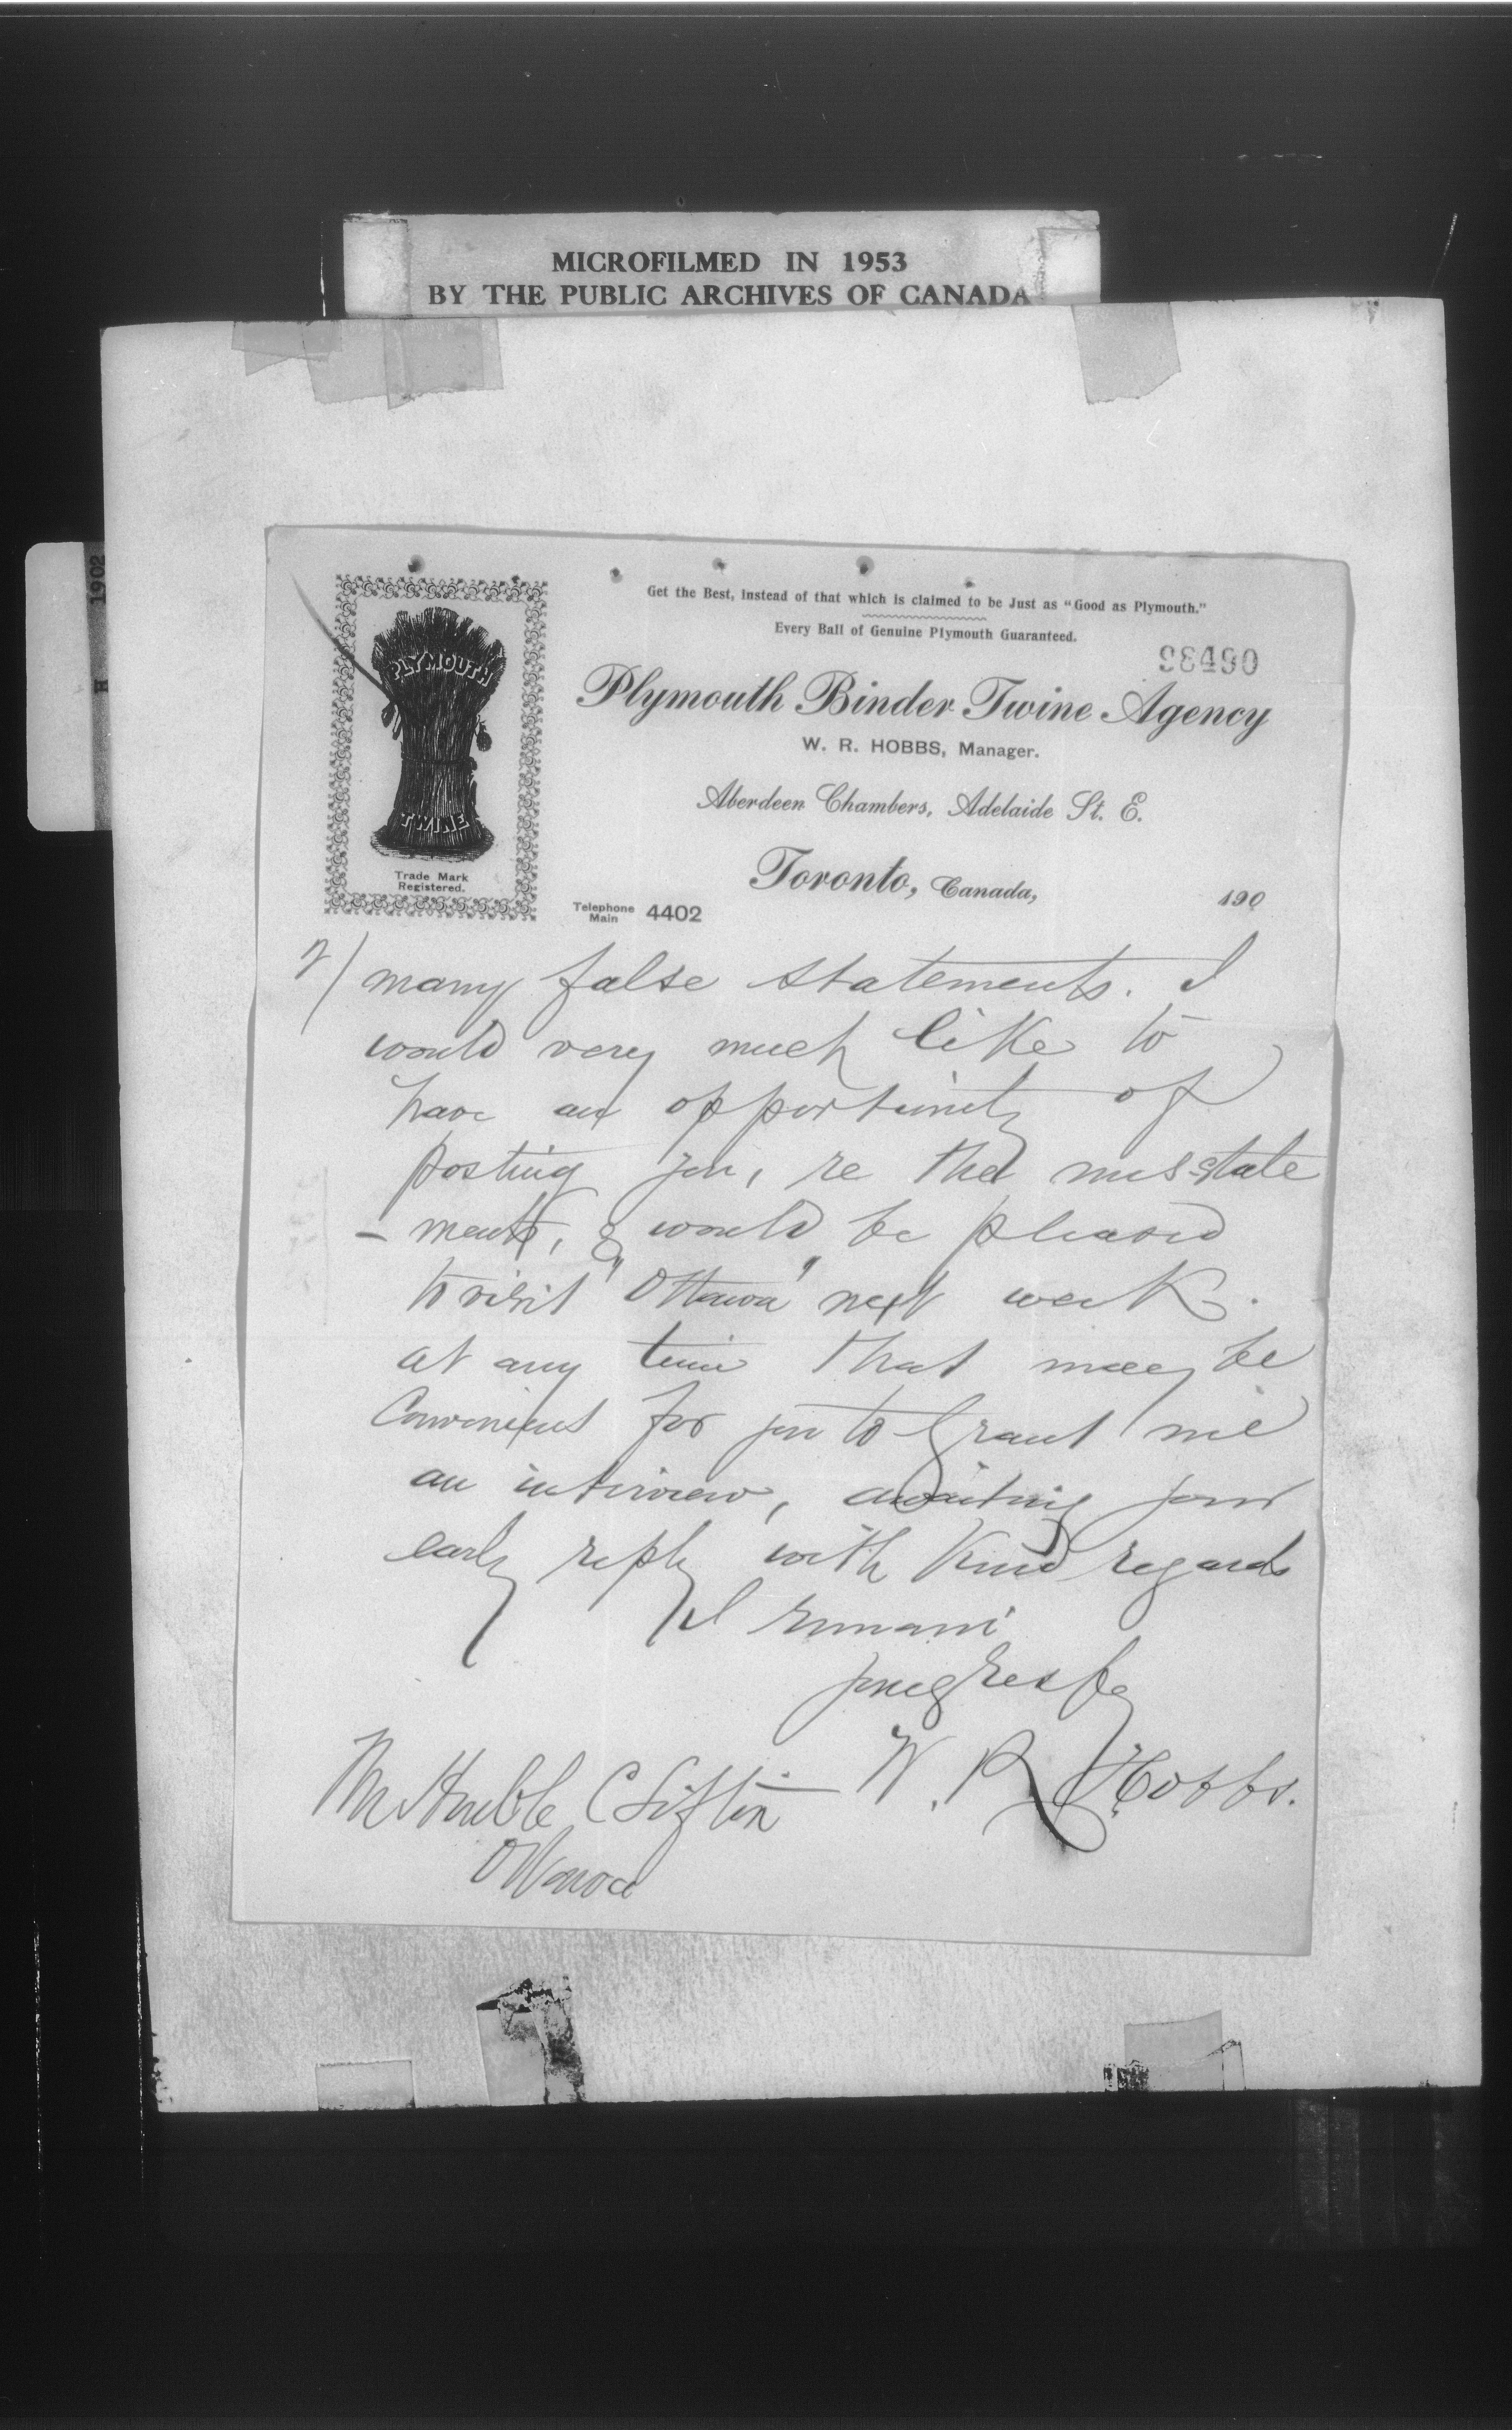 MICROFILMED IN 1953
BY THE PUBLIC ARCHIVES OF CANADA
1902
H
Get the Best, instead of that which is claimed to be Just as "Good as Plymouth."
Every Ball of Genuine Plymouth Guaranteed.
98490
PLYMOUTH
TWINE
Trade Mark
Registered.
Plymouth Binder Twine Agency
W. R. HOBBS, Manager.
Aberdeen Chambers, Adelaide St. E.
Toronto, Canada, 190
Telephone
Main 4402
2/ many false statements. I
would very much like to
have an opportunity of
posting you, re the misstate
- ments, & would be pleased
to visit "Ottawa" next week.
at any time that may be
Convenient for you to Grant me
an interview, awaiting your
early reply with Kind regards
I remain
W. R. Hobbs.
C Sifton
Ottawa